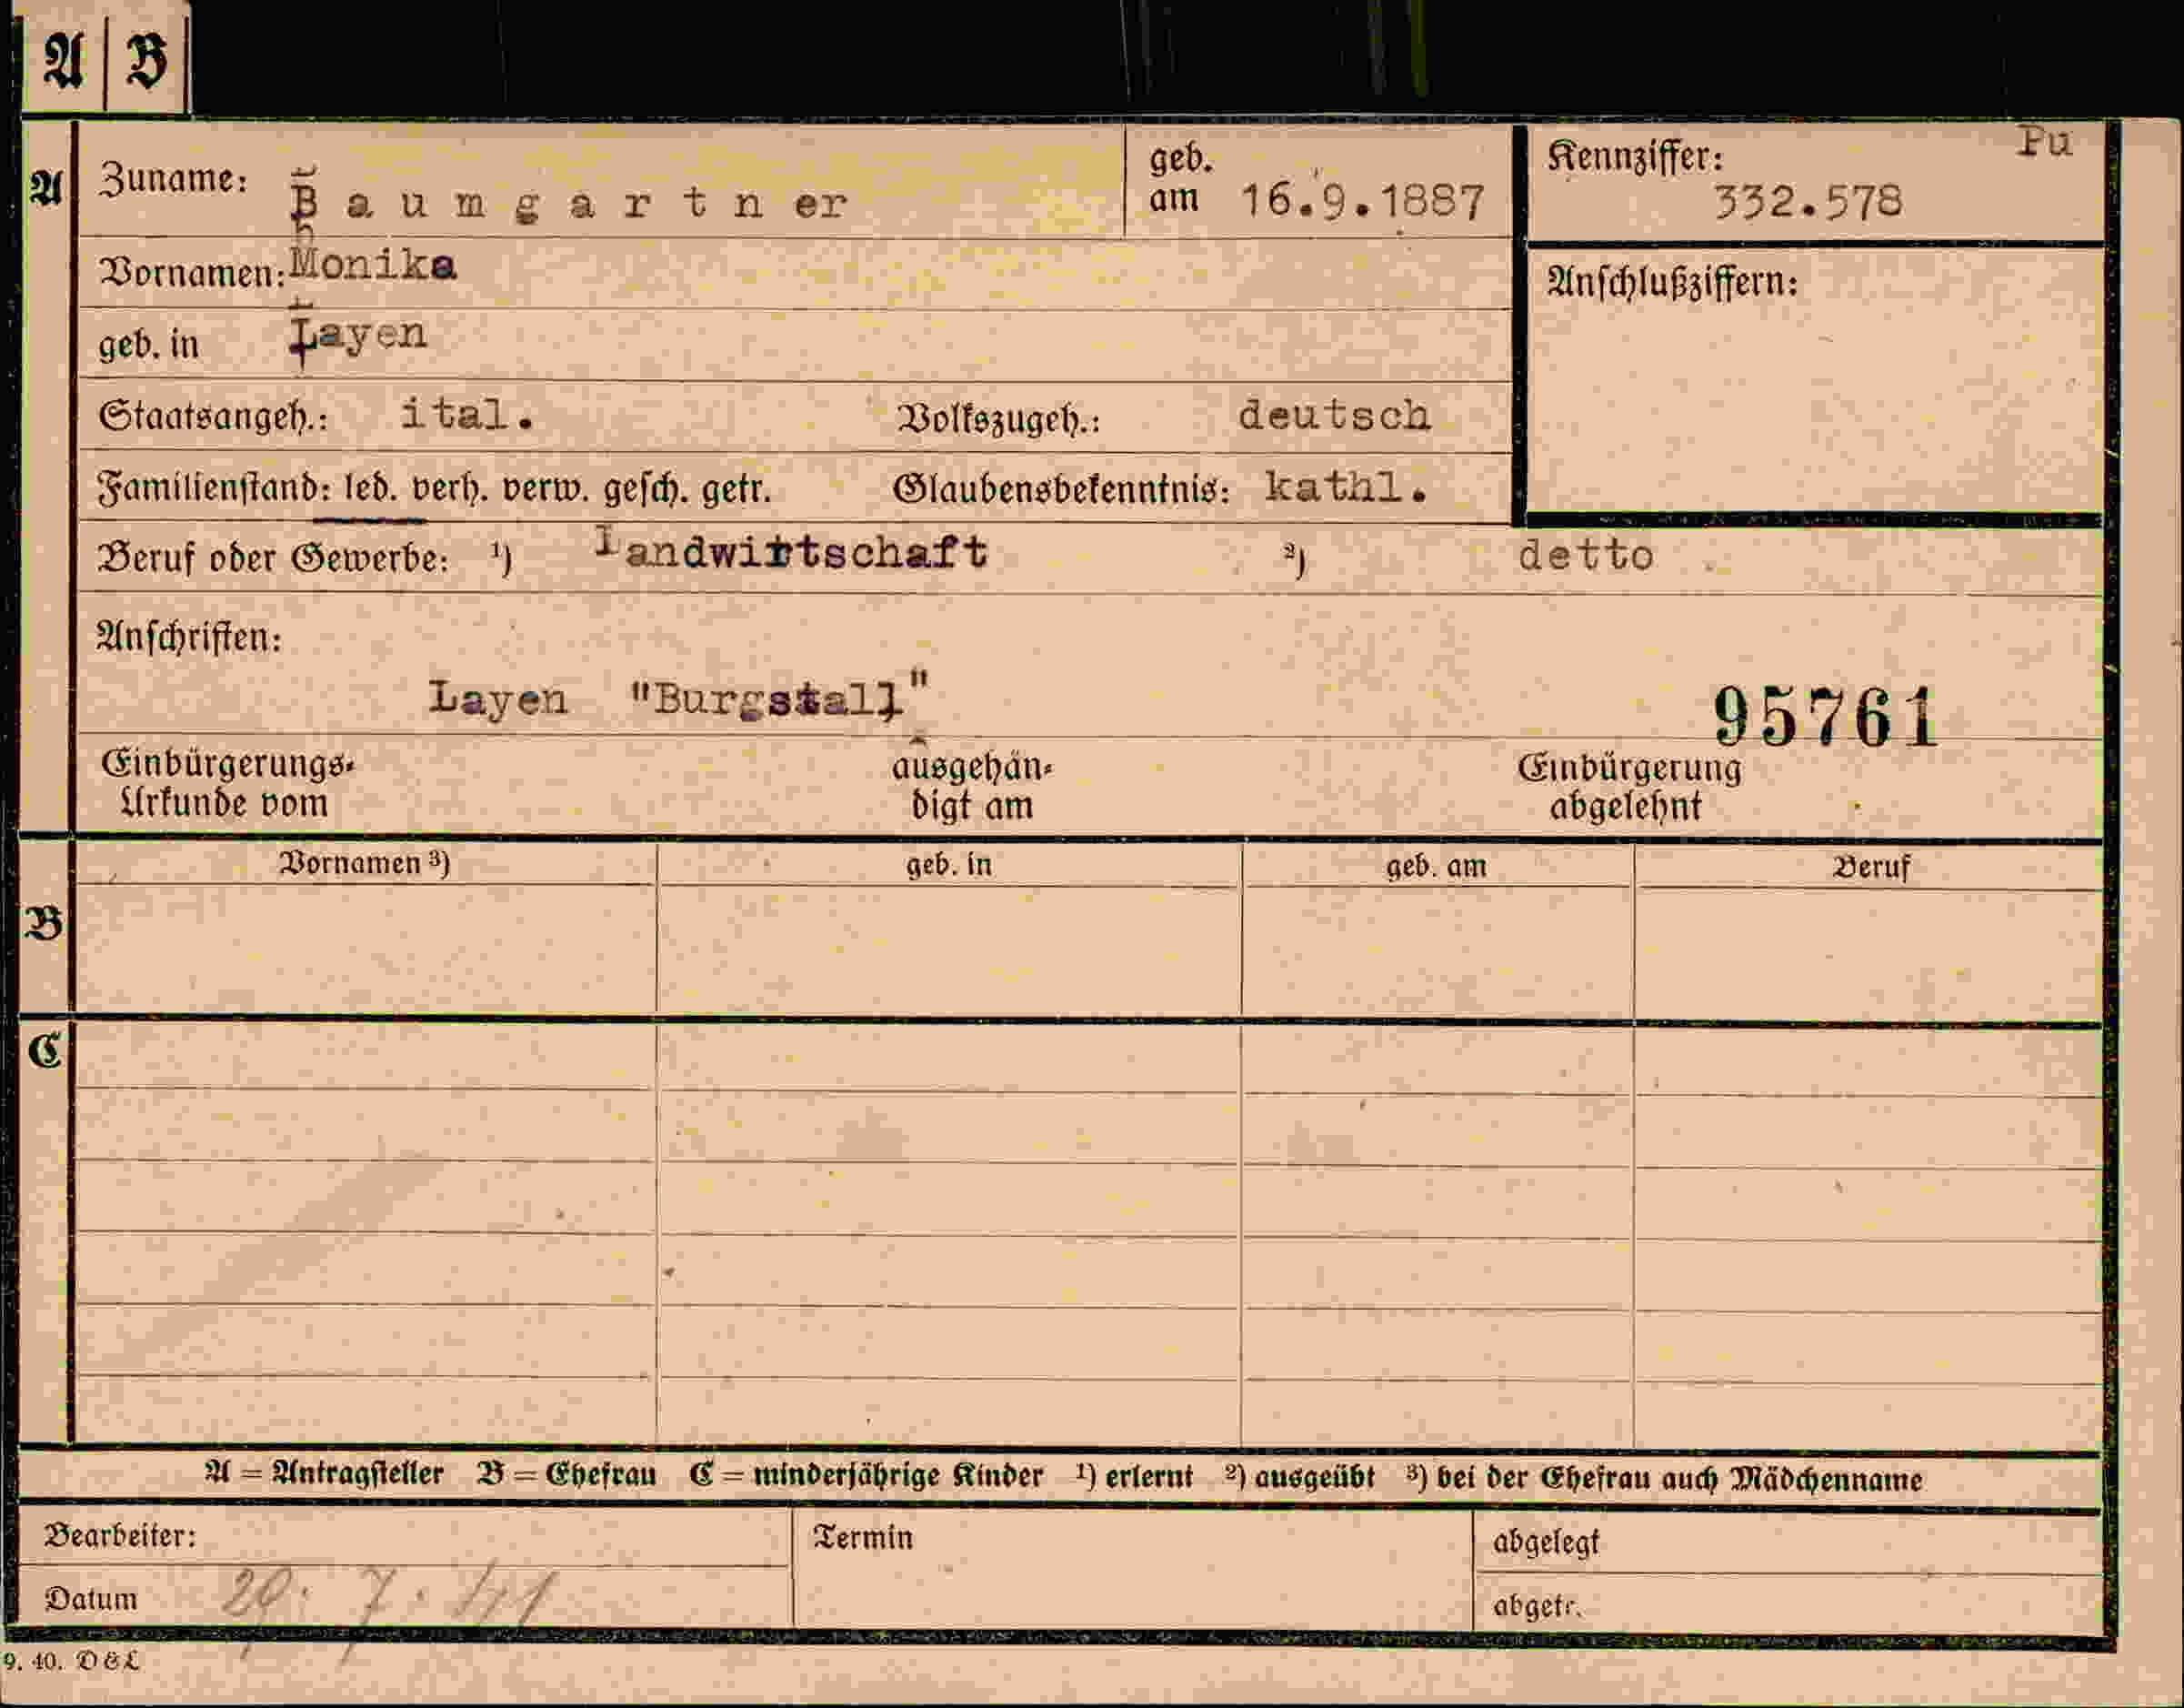 A B
A
Zuname: Baumgartner
geb. am 16.9.1887
Kennziffer: 332.578
Pu
Vornamen: Monika
Anschlußziffern:
geb. in Layen
Staatsangeh.: ital. Volkszugeh.: deutsch
Familienstand: led. verh. verw. gesch. getr. Glaubensbekenntnis: kathl.
Beruf oder Gewerbe: ¹) Landwirtschaft ²) detto
Anschriften:
Layen "Burgstall"
95761
Einbürgerungs-
Urkunde vom
ausgehän-
digt am
Einbürgerung
abgelehnt
B
Vornamen ³) geb. in geb. am Beruf
C
A = Antragsteller B = Ehefrau C = minderjährige Kinder ¹) erlernt ²) ausgeübt ³) bei der Ehefrau auch Mädchenname
Bearbeiter: Termin abgelegt
Datum 29. 7. 41 abgetr.
9. 40. D&L